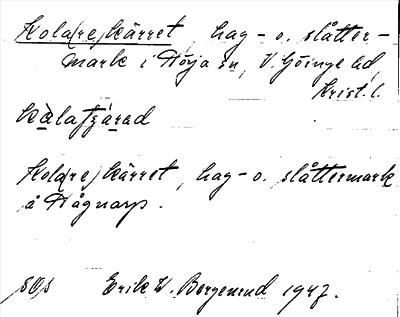 Kola(re)kärret, hag- o. slåtter-
mark i Höja sn, V. Göinge hd
Krist. l.
Kola(re)kärret, hag- o. slåttermark
å Hågnarp.
sOs Erik W. Bergenud 1947.